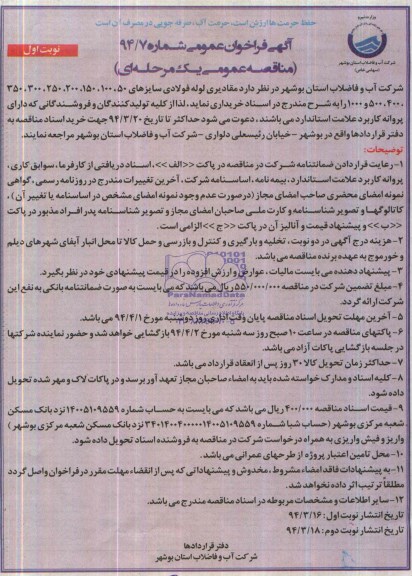 حفظ حرمت ها ارزش است، حرمت آب، صرفه جویی در مصرف آن است
وزارت نیرو
شرکت آب و فاضلاب استان بوشهر
(سهامی خاص)
آگهی فراخوان عمومی شماره ۹۴/۷
(مناقصه عمومی یک مرحله‌ای)
نوبت اول
شرکت آب و فاضلاب استان بوشهر در نظر دارد مقادیری لوله فولادی سایزهای ۵۰، ۱۰۰، ۱۵۰، ۲۰۰، ۲۵۰، ۳۰۰، ۳۵۰
، ۴۰۰، ۵۰۰ و ۱۰۰۰ را به شرح مندرج در اسناد خریداری نماید، لذا از کلیه تولیدکنندگان و فروشندگانی که دارای
پروانه کاربرد علامت استاندارد می باشند، دعوت می شود حداکثر تا تاریخ ۹۴/۳/۲۰ جهت خرید اسناد مناقصه به
دفتر قراردادها واقع در بوشهر - خیابان رئیسعلی دلواری - شرکت آب و فاضلاب استان بوشهر مراجعه نمایند.
توضیحات:
۱- رعایت قرار دادن ضمانتنامه شرکت در مناقصه در پاکت <<الف>>، اسناد دریافتی از کارفرما، سوابق کاری،
پروانه کاربرد علامت استاندارد، بیمه نامه، اساسنامه شرکت، آخرین تغییرات مندرج در روزنامه رسمی، گواهی
نمونه امضای محضری صاحب امضای مجاز (در صورت عدم وجود نمونه امضای مشخص در اساسنامه یا تغییر آن)،
کاتالوگها و تصویر شناسنامه و کارت ملی صاحبان امضای مجاز و تصویر شناسنامه پدر افراد مذبور در پاکت
<<ب>> و پیشنهاد قیمت و آنالیز آن در پاکت <<ج>> الزامی است.
۲- هزینه درج آگهی در دو نوبت، تخلیه و بارگیری و کنترل و بازرسی و حمل کالا تا محل انبار آبفای شهرهای دیلم
و خورموج به عهده برنده مناقصه می باشد.
۳- پیشنهاد دهنده می بایست مالیات، عوارض و ارزش افزوده را در قیمت پیشنهادی خود در نظر بگیرد.
۴- مبلغ تضمین شرکت در مناقصه ۵۵۰/۰۰۰/۰۰۰ ریال می باشد که می بایست به صورت ضمانتنامه بانکی به نفع این
شرکت ارائه گردد.
۵- آخرین مهلت تحویل اسناد مناقصه پایان وقت اداری روز دوشنبه مورخ ۹۴/۴/۱ می باشد.
۶- پاکتهای مناقصه در ساعت ۱۰ صبح روز سه شنبه مورخ ۹۴/۴/۲ بازگشایی خواهد شد و حضور نماینده شرکتها
در جلسه بازگشایی پاکات آزاد می باشد.
۷- حداکثر زمان تحویل کالا ۳۰ روز پس از انعقاد قرارداد می باشد.
۸- کلیه اسناد و مدارک خواسته شده باید به امضاء صاحبان مجاز تعهد آور برسد و در پاکات لاک و مهر شده تحویل
داده شود.
۹- قیمت اسناد مناقصه ۴۰۰/۰۰۰ ریال می باشد که می بایست به حساب شماره ۱۴۰۰۵۱۰۹۵۵۹ نزد بانک مسکن
شعبه مرکزی بوشهر (حساب شبا شماره نزد بانک مسکن شعبه مرکزی بوشهر)
واریز و فیش واریزی به همراه درخواست شرکت در مناقصه به فروشنده اسناد تحویل داده شود.
۱۰- محل تامین اعتبار پروژه از طرحهای عمرانی می باشد.
۱۱- به پیشنهادات فاقد امضاء مشروط، مخدوش و پیشنهاداتی که پس از انقضاء مهلت مقرر در فراخوان واصل گردد
مطلقاً ترتیب اثر داده نخواهد شد.
۱۲- سایر اطلاعات و مشخصات مربوطه در اسناد مناقصه مندرج می باشد.
تاریخ انتشار نوبت اول: ۹۴/۳/۱۶
تاریخ انتشار نوبت دوم: ۹۴/۳/۱۸
دفتر قراردادها
شرکت آب و فاضلاب استان بوشهر